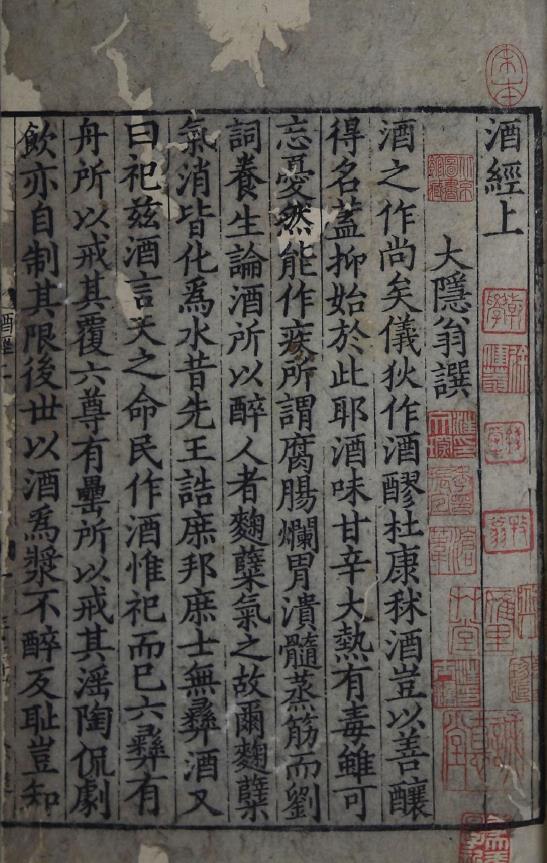 酒經上
大隱翁譔
酒之作尚矣儀狄作酒醪杜康秫酒豈以善釀
得名蓋抑始於此耶酒味甘辛大熱有毒雖可
忘憂然能作疾所謂腐腸爛胃潰髓蒸筋而劉
詞養生論酒所以醉人者麴糵氣之故爾麴糵
氣消皆化爲水昔先王誥庶邦庶士無彝酒又
曰祀茲酒言天之命民作酒惟祀而已六彝有
舟所以戒其覆六尊有罍所以戒其滛陶侃劇
飲亦自制其限後世以酒爲漿不醉反恥豈知